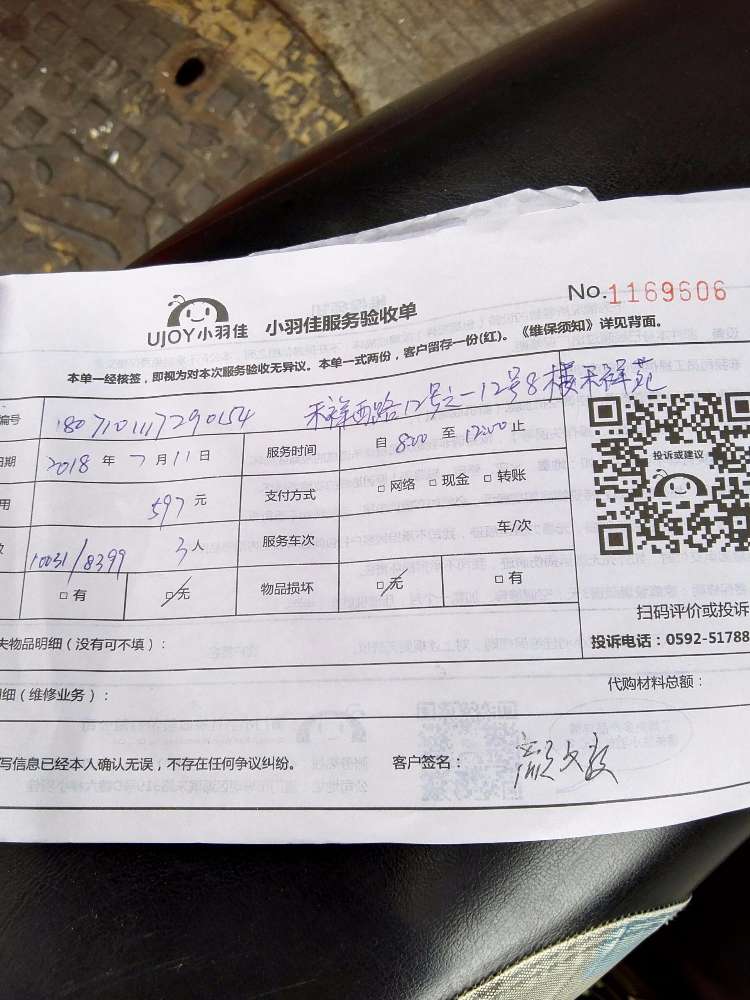 No.1169606
UJOY小羽佳 小羽佳服务验收单
本单一经核签，即视为对本次服务验收无异议。本单一式两份，客户留存一份(红)。《维保须知》详见背面。
编号 1807101117290154 禾祥西路12号之一12号8楼禾祥苑
日期 2018 年 7 月 11 日 服务时间 自 8:00 至 12:00 止
用 597 元 支付方式 □ 网络 □ 现金 □ 转账
数 10031/8399 3 人 服务车次 车/次
□ 有 □ 无 物品损坏 □ 无 □ 有
投诉或建议
扫码评价或投诉
投诉电话：0592-51788
失物品明细（没有可不填）：
细（维修业务）： 代购材料总额：
写信息已经本人确认无误，不存在任何争议纠纷。 客户签名：